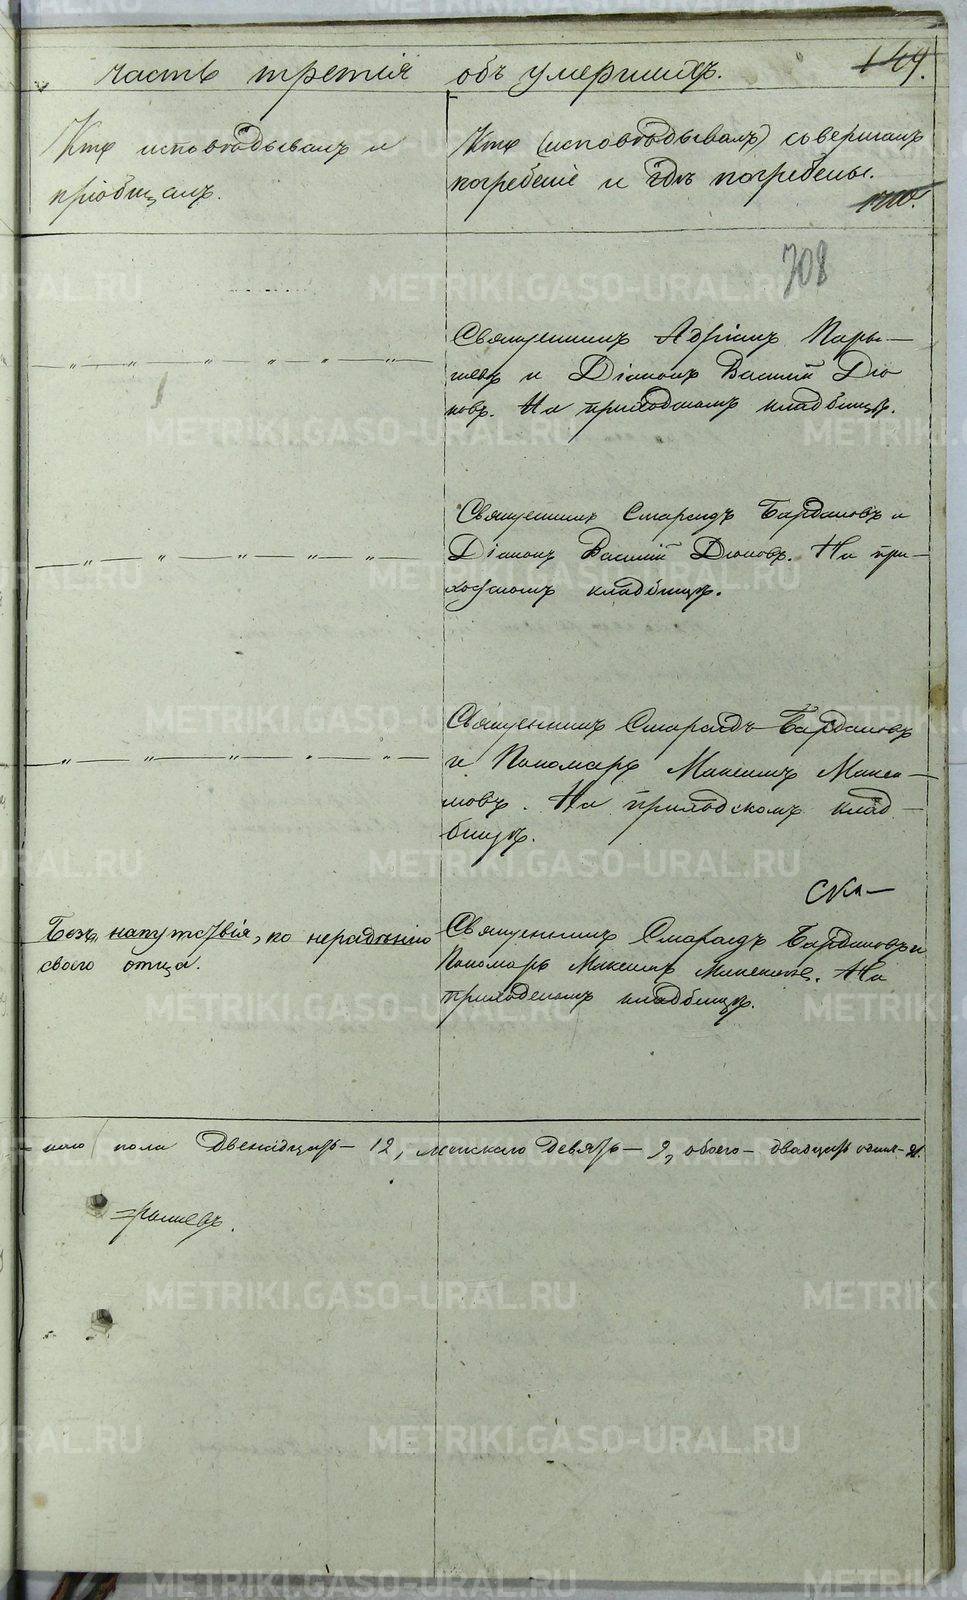 часть третія объ умершихъ.
149.
Кто исповѣдывалъ и
пріобщалъ.
Кто (исповѣдывалъ) совершалъ
погребеніе и гдѣ погребены.
708
Священникъ Адріанъ Пары-
чевъ и Діаконъ Василій Дю
ковъ. На приходскомъ кладбищѣ.
Священникъ Смарагдъ Бардаковъ и
Діаконъ Василій Дюковъ. На при-
ходскомъ кладбищѣ.
Священникъ Смарагдъ Бардаковъ
и Пономарь Максимъ Макси-
мовъ. На приходскомъ клад-
бищѣ.
Безъ напутствія, по нерадѣнію
своего отца.
Священникъ Смарагдъ Бардаковъ и
Пономарь Максимъ Максимовъ. На
приходскомъ кладбищѣ.
пола двенадцать - 12, женскаго девять - 9, обоего - двадцать одинъ - 21.
METRIKI.GASO-URAL.RU